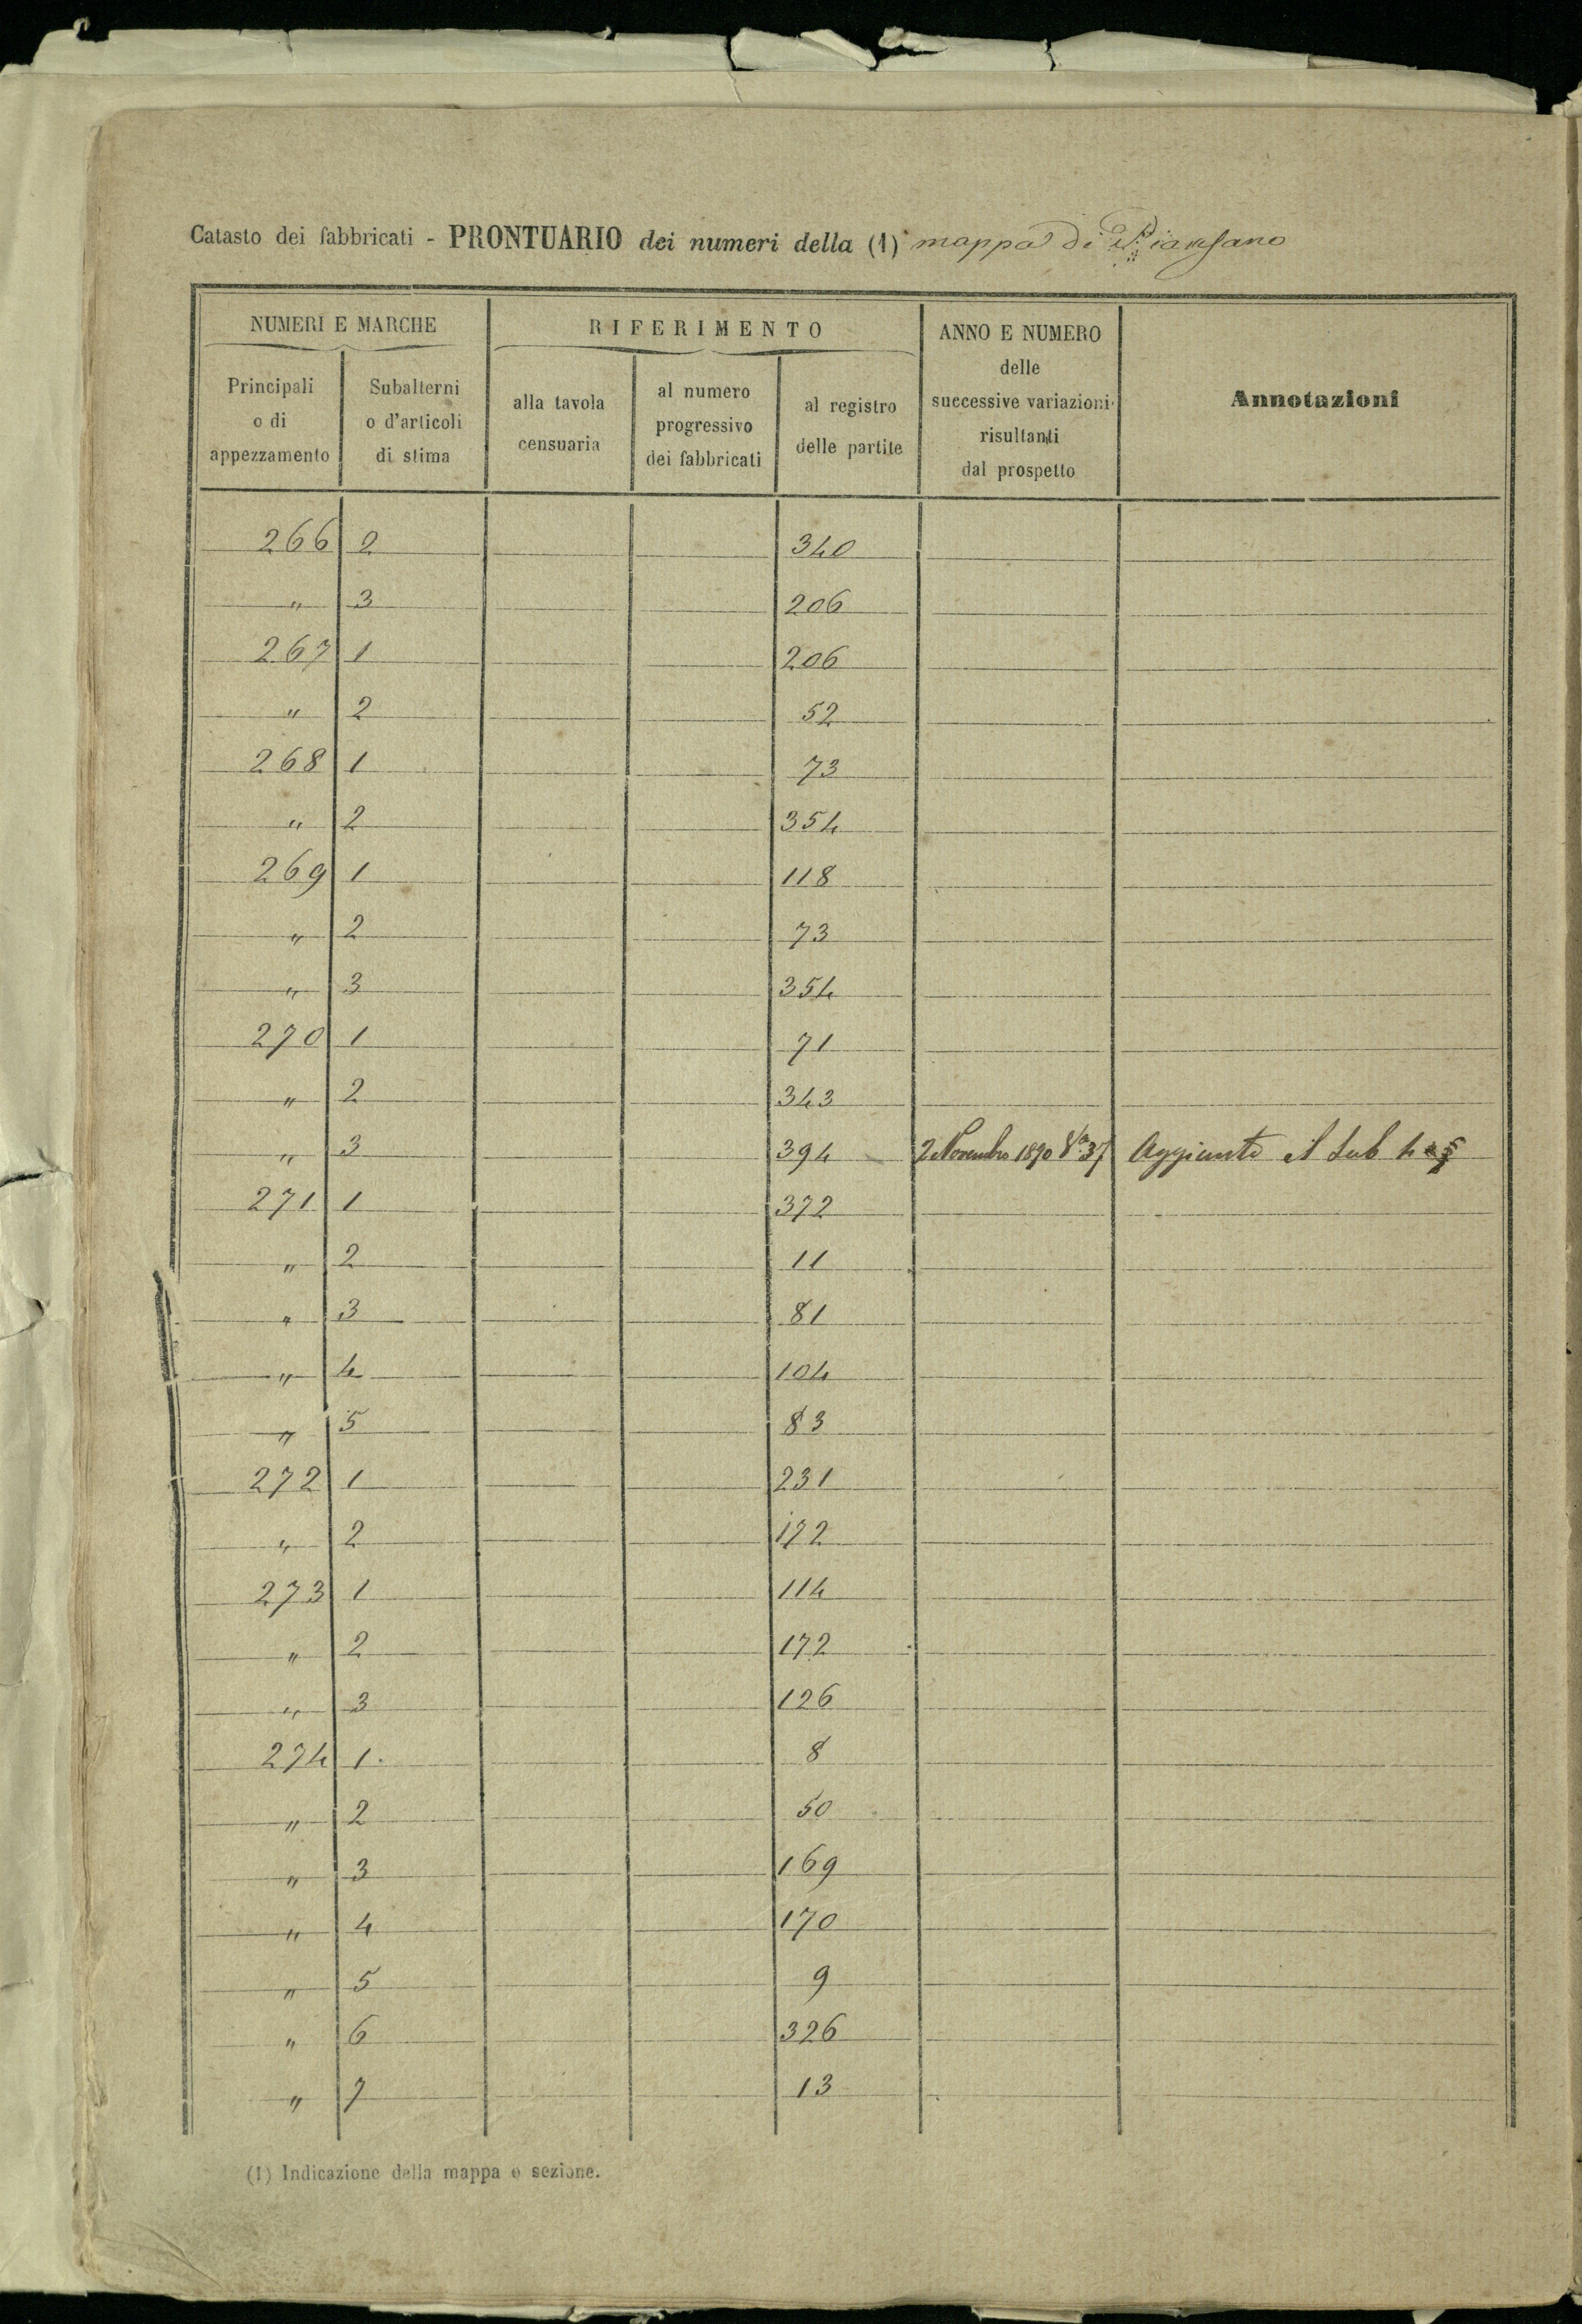 Catasto dei fabbricati - PRONTUARIO dei numeri della (1) mappa di Piansano
NUMERI E MARCHE
RIFERIMENTO
ANNO E NUMERO delle successive variazioni risultanti dal prospetto
Annotazioni
Principali o di appezzamento
Subalterni o d'articoli di stima
alla tavola censuaria
al numero progressivo dei fabbricati
al registro delle partite
266 2 340
" 3 206
267 1 206
" 2 52
268 1 73
" 2 354
269 1 118
" 2 73
" 3 354
270 1 71
" 2 343
" 3 394 2 Novembre 1890 37 Aggiunto il Sub 4
271 1 372
" 2 11
" 3 81
" 4 104
" 5 83
272 1 231
" 2 172
273 1 114
" 2 172
" 3 126
274 1 8
" 2 50
" 3 169
" 4 170
" 5 9
" 6 326
" 7 13
(1) Indicazione della mappa o sezione.